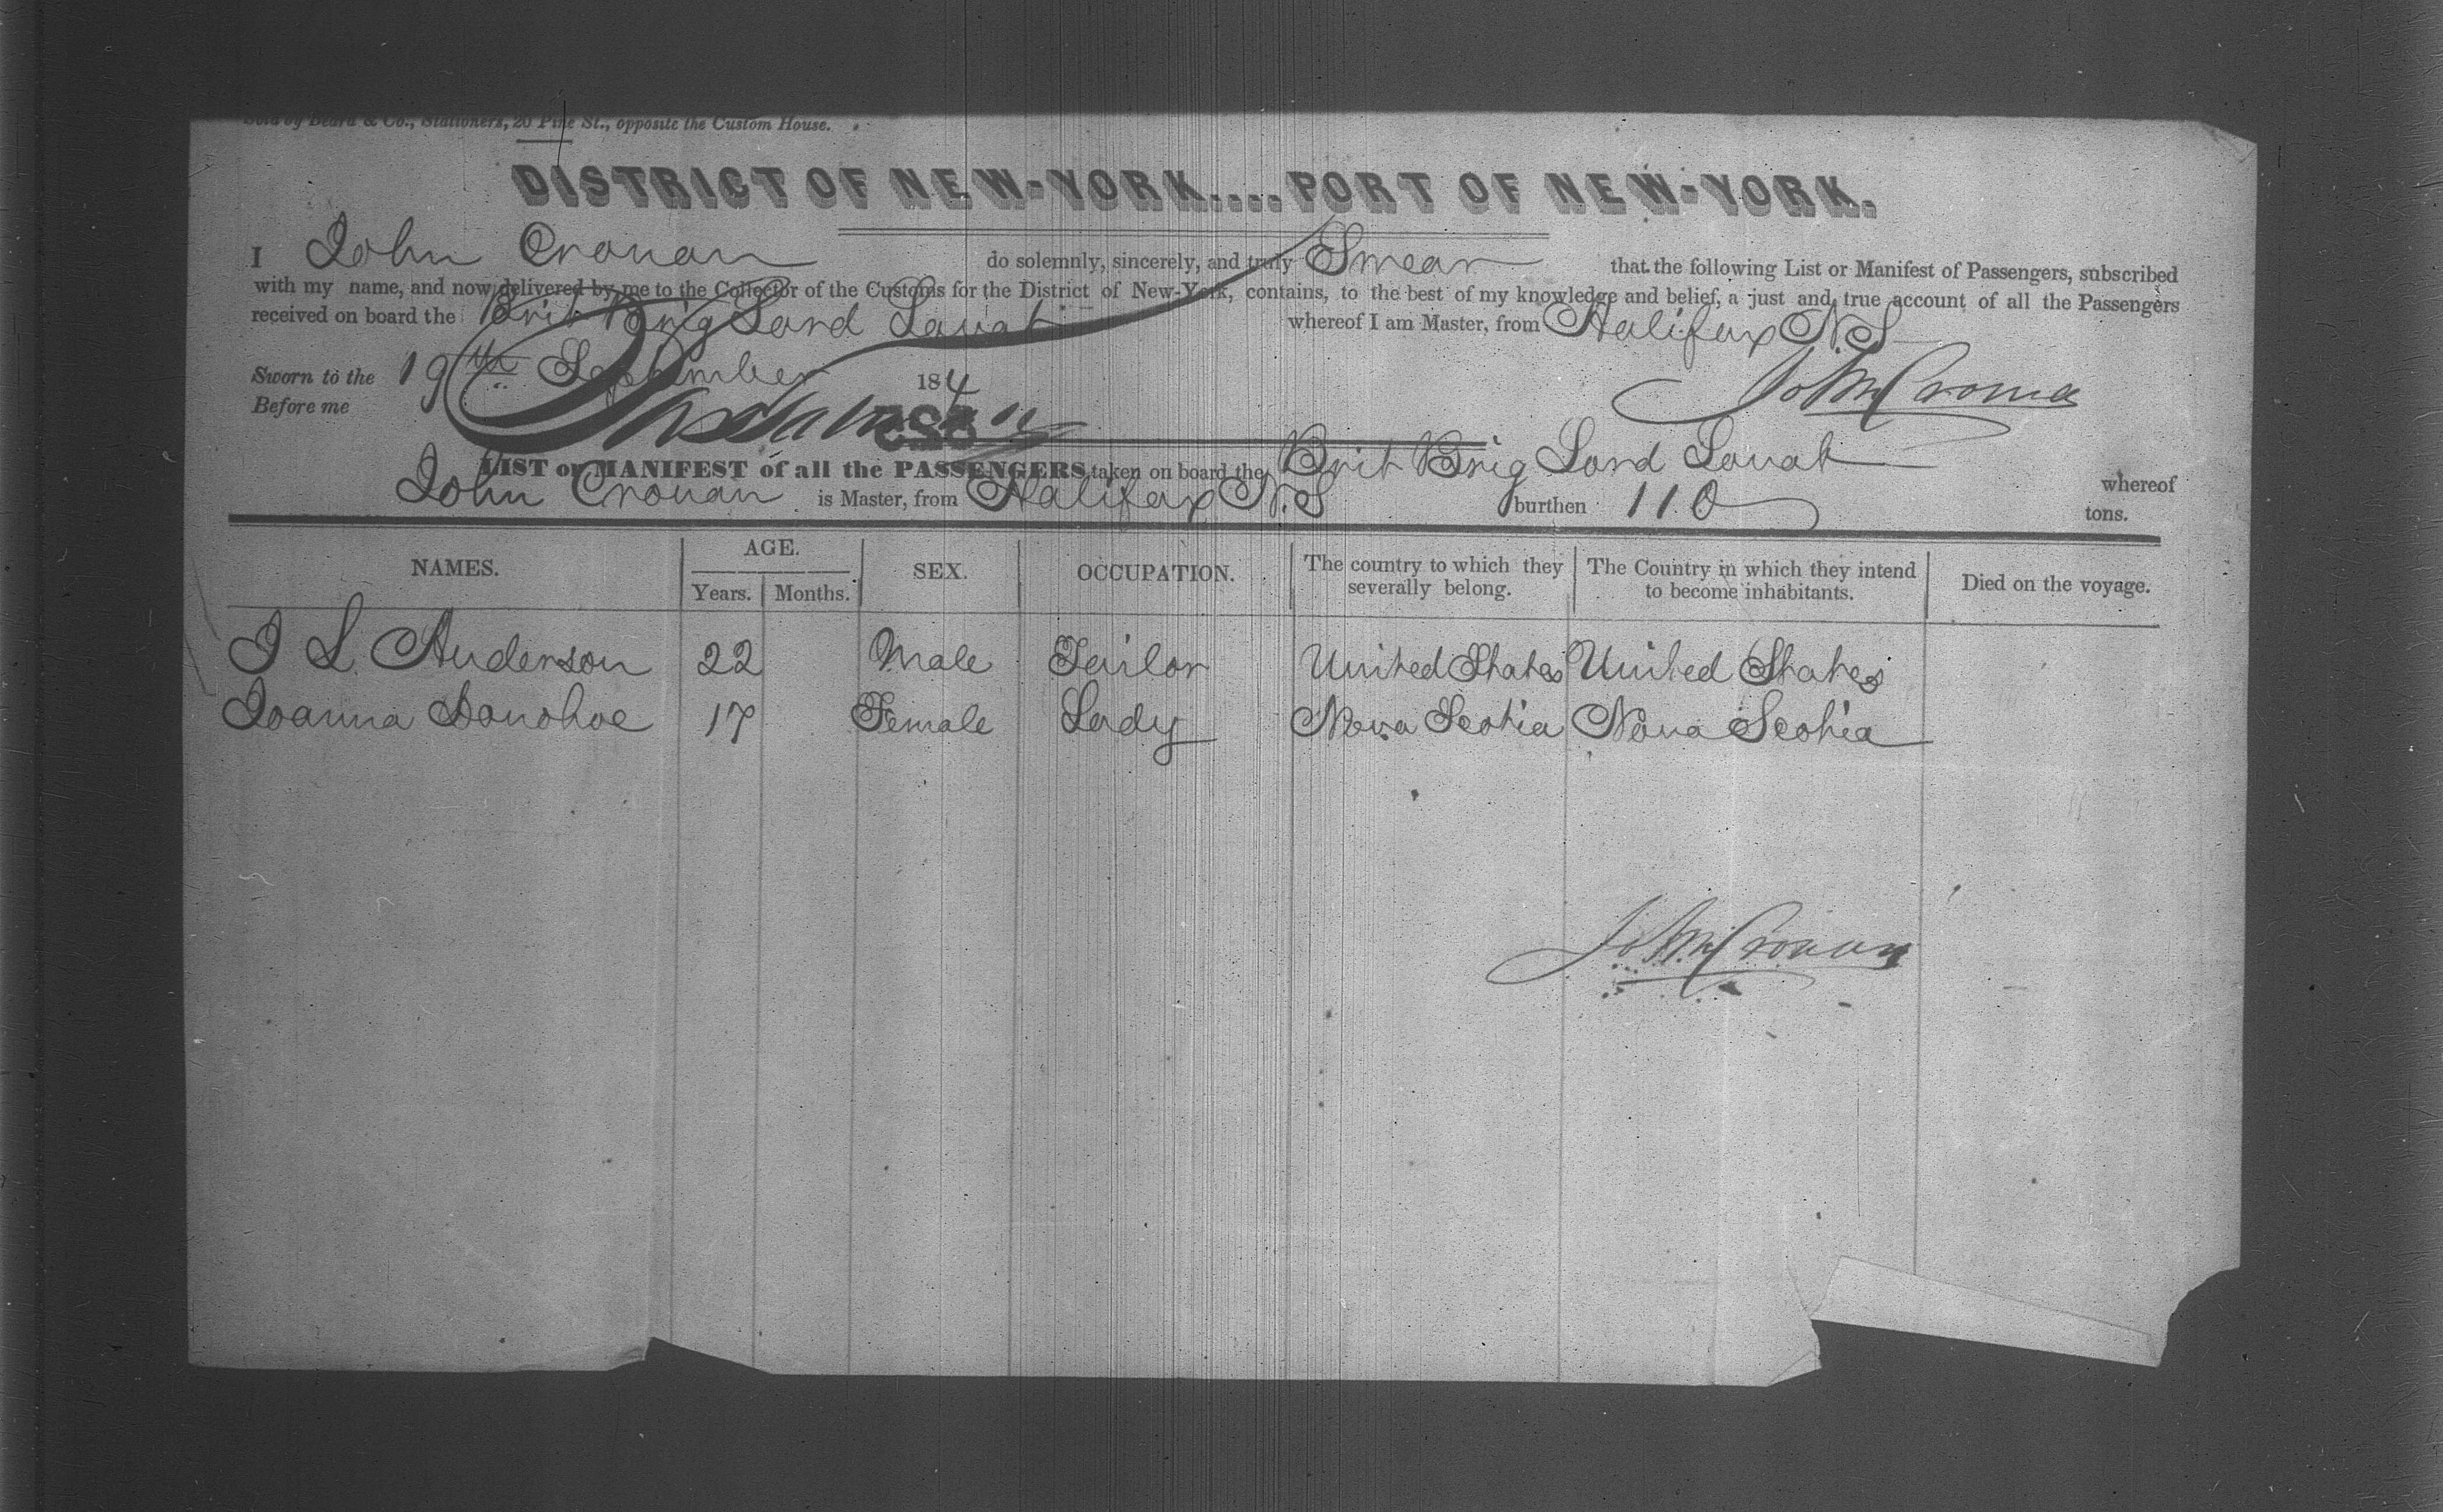 Sold by Beard & Co., Stationers, 20 Pine St., opposite the Custom House.
DISTRICT OF NEW-YORK....PORT OF NEW-YORK.
I John Cronan do solemnly, sincerely, and truly Swear that the following List or Manifest of Passengers, subscribed
with my name, and now delivered by me to the Collector of the Customs for the District of New-York, contains, to the best of my knowledge and belief, a just and true account of all the Passengers
received on board the Brit Brig Lord Lovat whereof I am Master, from Halifax N.S
Sworn to the 19th September 184
John Cronan
Before me
LIST or MANIFEST of all the PASSENGERS taken on board the Brit Brig Lord Lovat whereof
John Cronan is Master, from Halifax N.S burthen 110 tons.
NAMES. AGE. SEX. OCCUPATION. The country to which they severally belong. The Country in which they intend to become inhabitants. Died on the voyage.
Years. Months.
J L. Anderson 22 Male Tailor United States United States
Joanna Donohoe 17 Female Lady Nova Scotia Nova Scotia
John Cronan